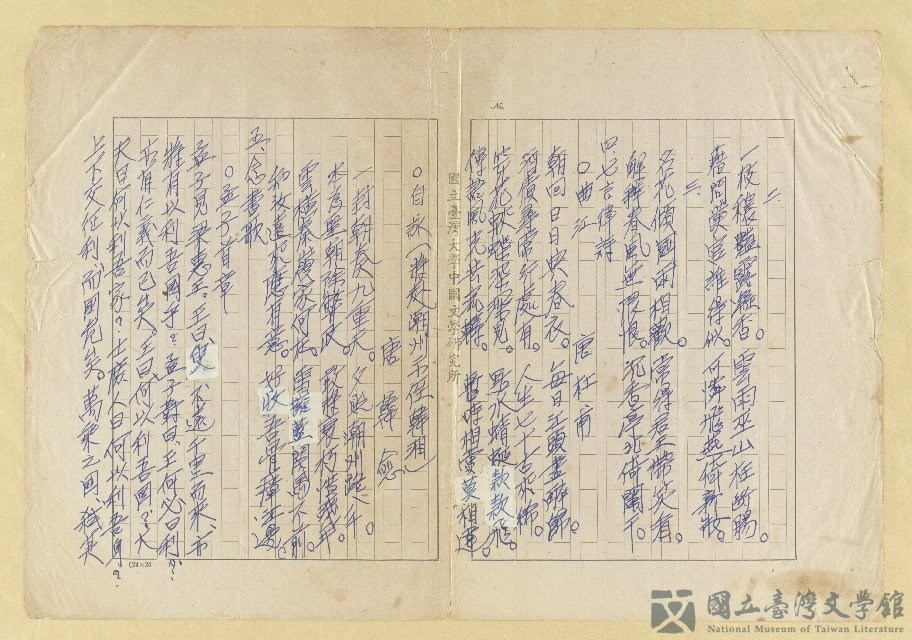 No.
二、
一枝穠豔露凝香。雲雨巫山枉斷腸。
借問漢宮誰得似。何憐飛燕倚新妝。
三、
名花傾國兩相歡。常得君王帶笑看。
解釋春風無限恨。沉香亭北倚闌干。
四、七言律詩
○曲江 唐 杜甫
朝回日日典春衣。每日江頭盡醉歸。
酒債尋常行處有。人生七十古來稀。
穿花蛺蝶深深見。點水蜻蜓款款飛。
傳語風光共流轉。暫時相賞莫相違。
國立臺灣大學中國文學研究所
○自詠(謫赴潮州示侄韓湘)
唐 韓愈
一封朝奏九重天。夕貶潮州路八千。
雲橫秦嶺家何在。雪擁藍關馬不前。
知汝遠來應有意。好收吾骨瘴江邊。
五、念書歌
○孟子首章
孟子見梁惠王。王曰、叟、不遠千里而來、亦
將有以利吾國乎?。孟子對曰、王何必曰利?。
亦有仁義而已矣。王曰何以利吾國?。大
夫曰何以利吾家?。士庶人曰何以利吾身?。
上下交征利、而國危矣。萬乘之國、弒其
(24×25
國立臺灣文學館
National Museum of Taiwan Literature